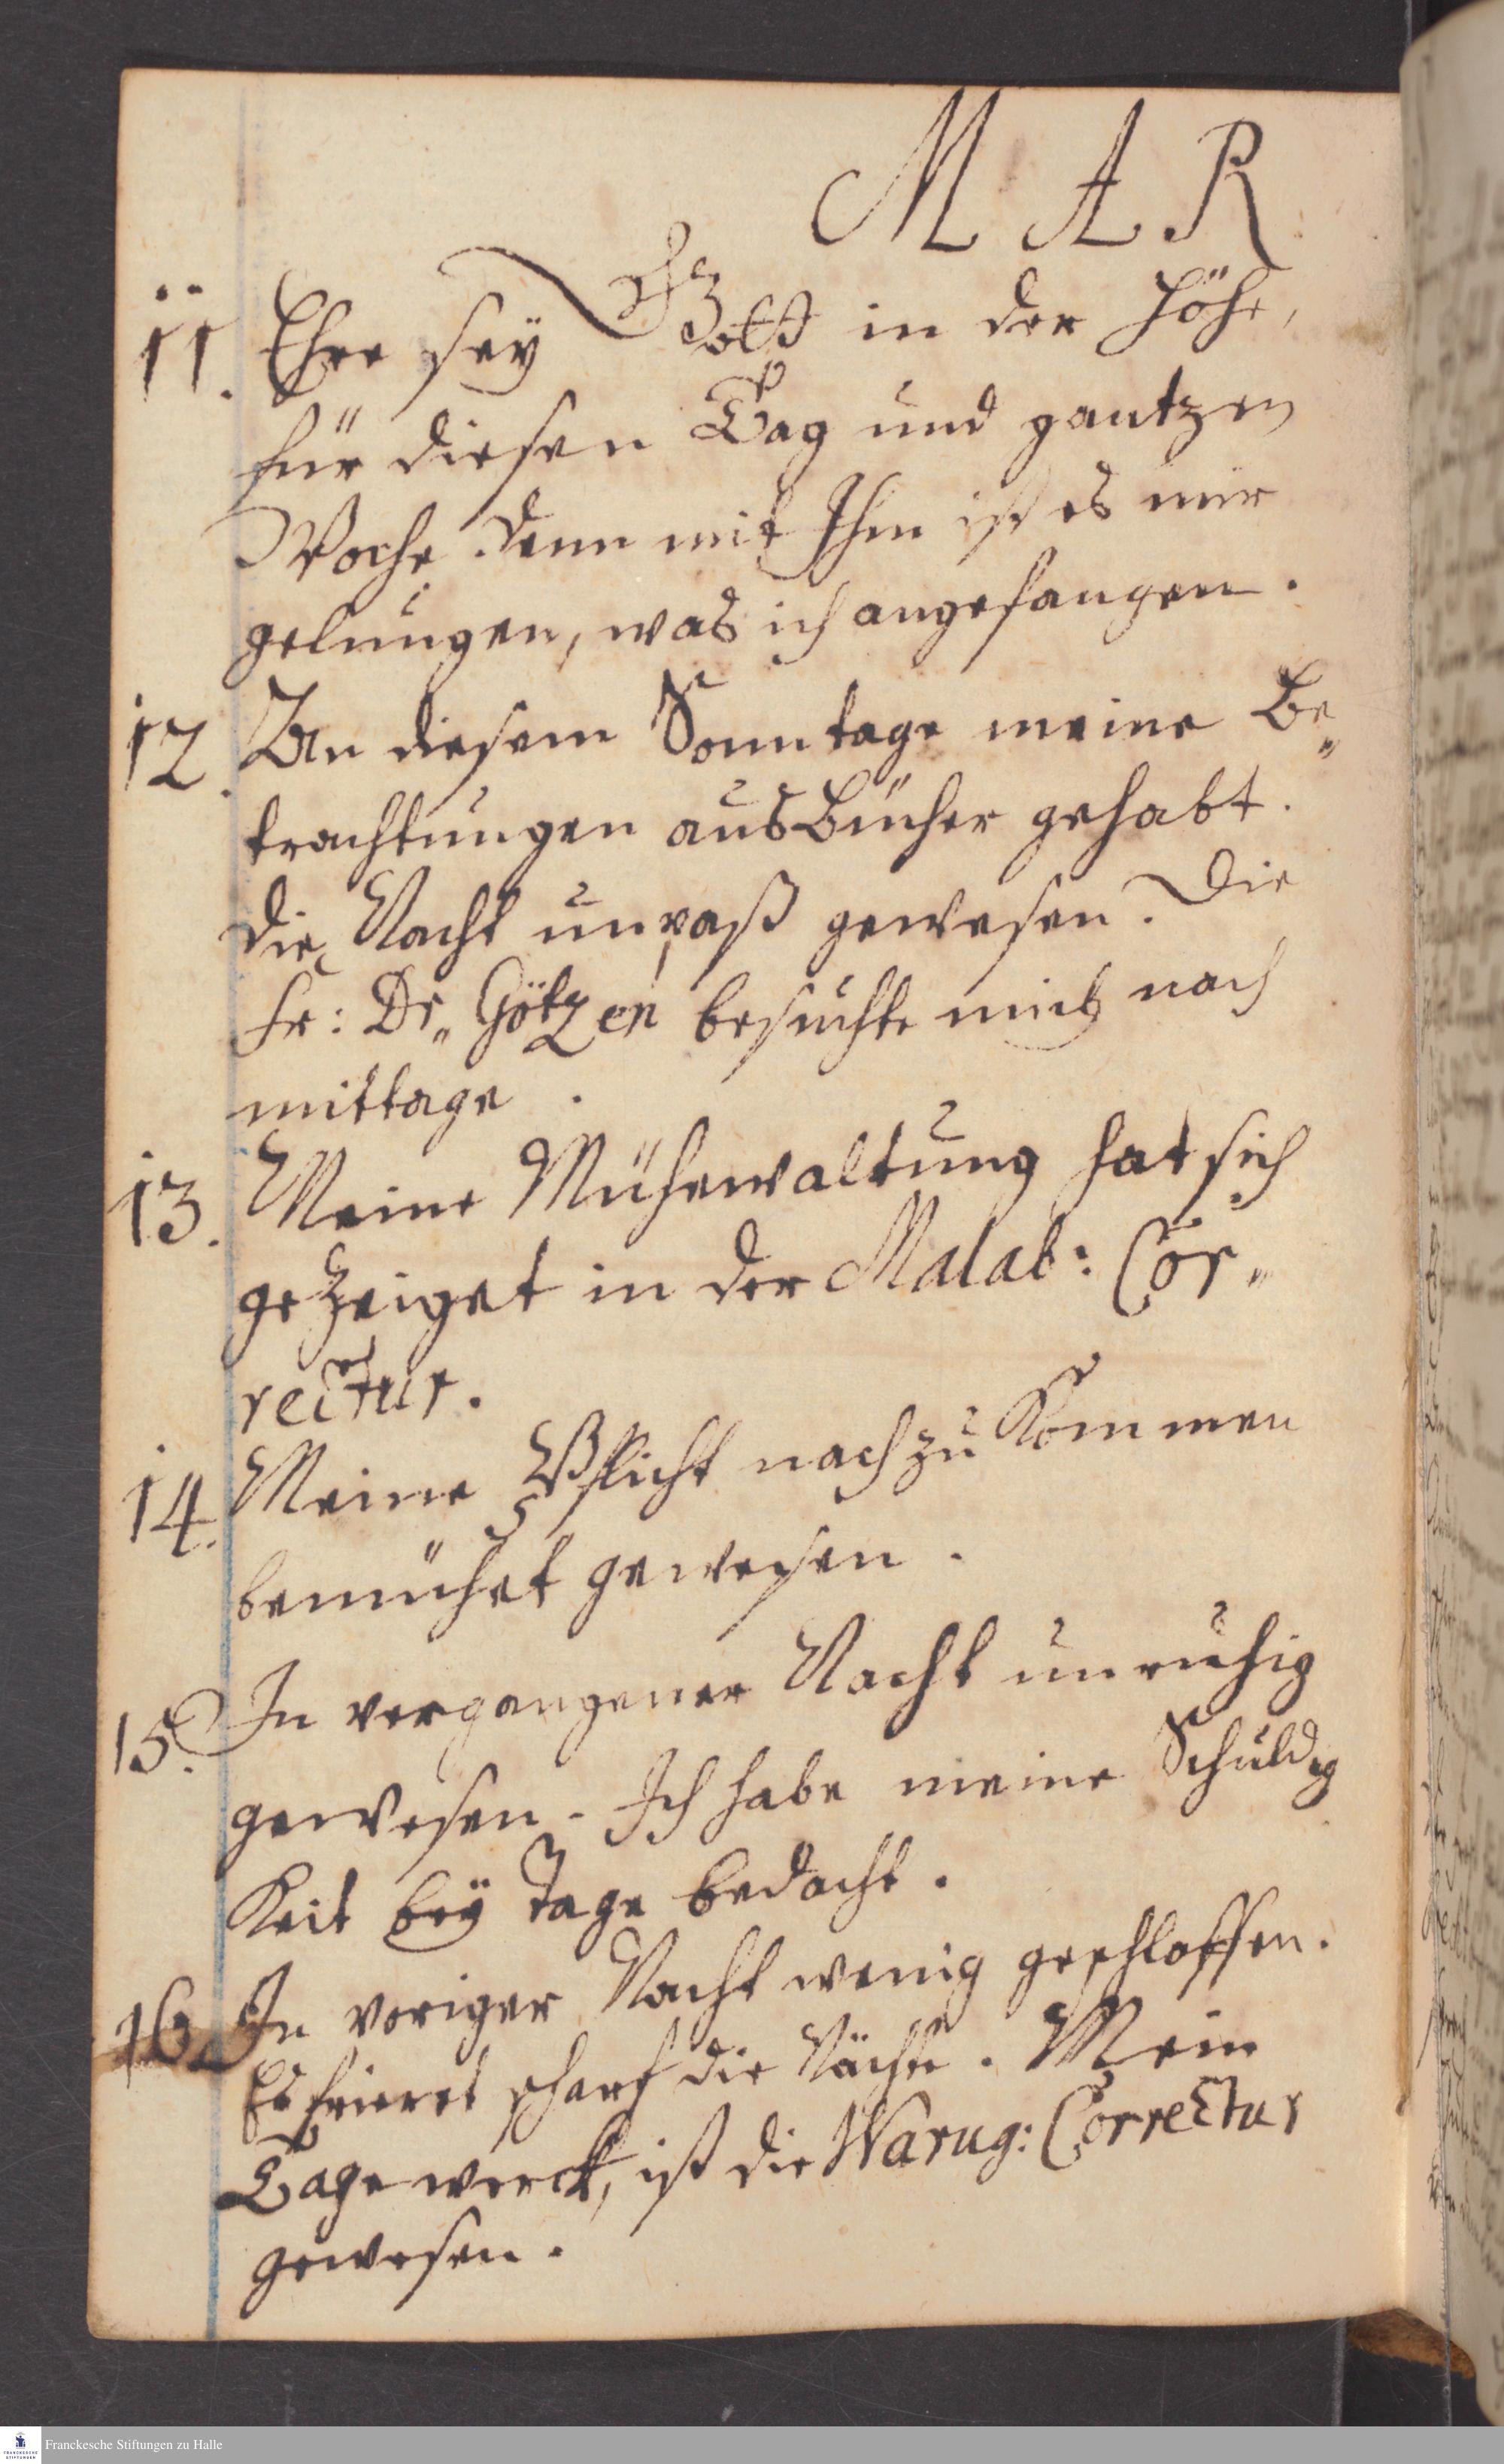 MAR
11. Ehre sey Gott in der Höhe,
für diesen Tag und gantzen
Woche. denn mit Ihm ist es mir
gelungen, was ich angefangen.
12. An diesem Sonntage meine Be„
trachtungen aus Bücher gehabt.
die Nacht unpaß gewesen. Die
Fr: Dr„ Götzen besuchte mich nach
mittage.
13. Meine Mühewaltung hat sich
gezeiget in der Malab: Cor„
rectur.
14. Meine Pflicht nachzukommen
bemühet gewesen.
15. In vergangener Nacht unruhig
gewesen. Ich habe meine Schuldig
keit bey Tage bedacht.
16. In voriger Nacht wenig geschlaffen.
Es frieret scharf die Nächte. Mein
Tagewerck, ist die Warug: Correctur
gewesen.
Franckesche Stiftungen zu Halle